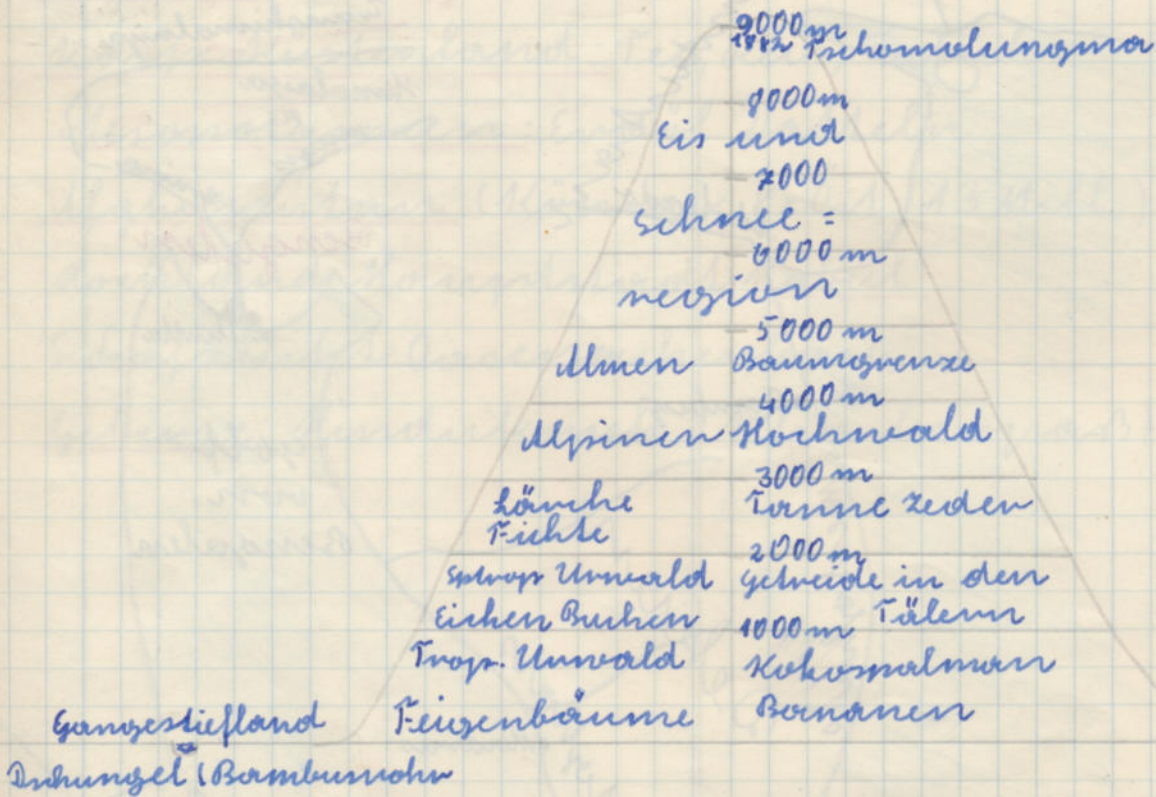 9000 m
1882 Tschomolungma
8000 m
Eis und
7000
Schnee =
6000 m
region
5000 m
Almen Baumgrenze
4000 m
Alpinen Hochwald
3000 m
Lärche Tanne Zeder
Fichte
2000 m
Sptrop Urwald Getreide in den
Eichen Buchen 1000 m Tälern
Trop. Urwald Kokospalman
Gangestiefland Feigenbäume Bananen
Dschungel (Bambusrohr